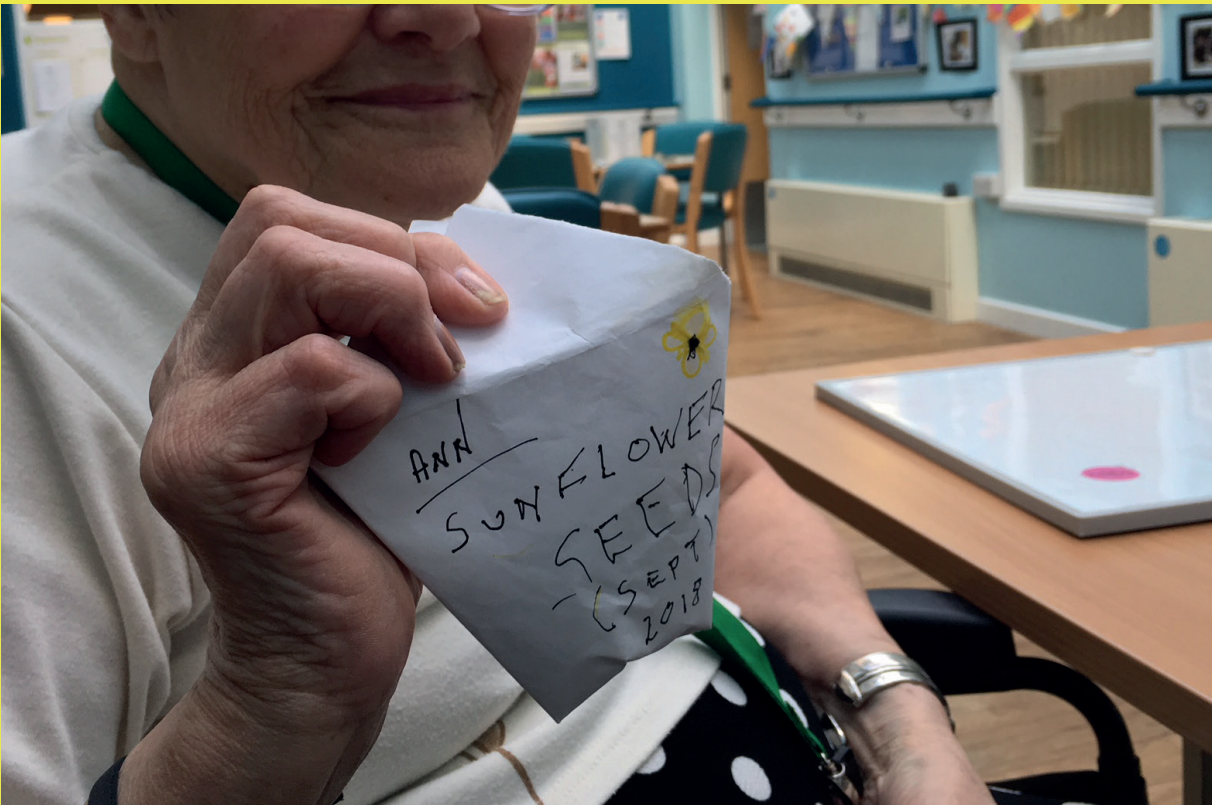 ANN
SUNFLOWER
SEEDS
- (SEPT)
2018